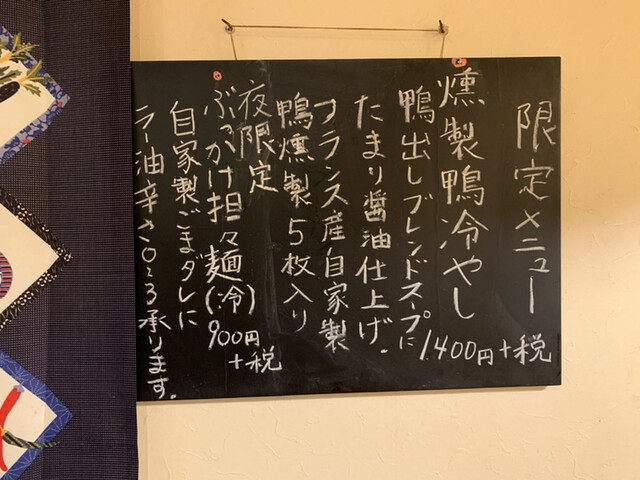 限定メニュー
燻製鴨冷やし
1400円+税
鴨出しブレンドスープに
たまり醤油仕上げ.
フランス産自家製
鴨燻製5枚入り
夜限定
ぶっかけ担々麺(冷)
900円
+税
自家製ごまタレに
ラー油辛さ0~3承ります.